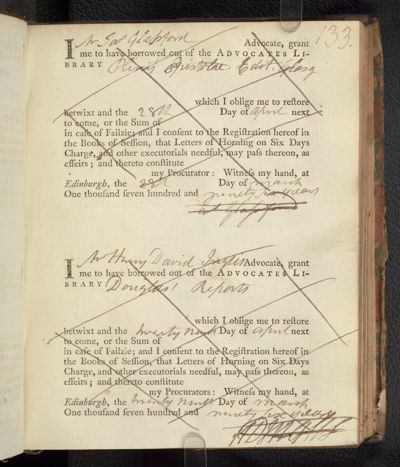 133.
I Mr Jas Glassford Advocate, grant
me to have borrowed out of the ADVOCATES LI-
BRARY Plinij Epistolae Edit.
which I oblige me to reſtore
betwixt and the 28th Day of April next
to come, or the Sum of
in caſe of Failzie; and I conſent to the Regiſtration hereof in
the Books of Seſſion, that Letters of Horning on Six Days
Charge, and other executorials needful, may paſs thereon, as
effeirs; and thereto conſtitute
my Procurator: Witneſs my hand, at
Edinburgh, the 28th Day of March
One thouſand ſeven hundred and ninety six years
Jas Glassford
I Mr Henry David Inglis Advocate, grant
me to have borrowed out of the ADVOCATES LI-
BRARY Douglas' Reports
which I oblige me to reſtore
betwixt and the twenty ninth Day of April next
to come, or the Sum of
in caſe of Failzie; and I conſent to the Regiſtration hereof in
the Books of Seſſion, that Letters of Horning on Six Days
Charge, and other executorials needful, may paſs thereon, as
effeirs; and thereto conſtitute
my Procurators: Witneſs my hand, at
Edinburgh, the twenty ninth Day of March
One thouſand ſeven hundred and ninety six years